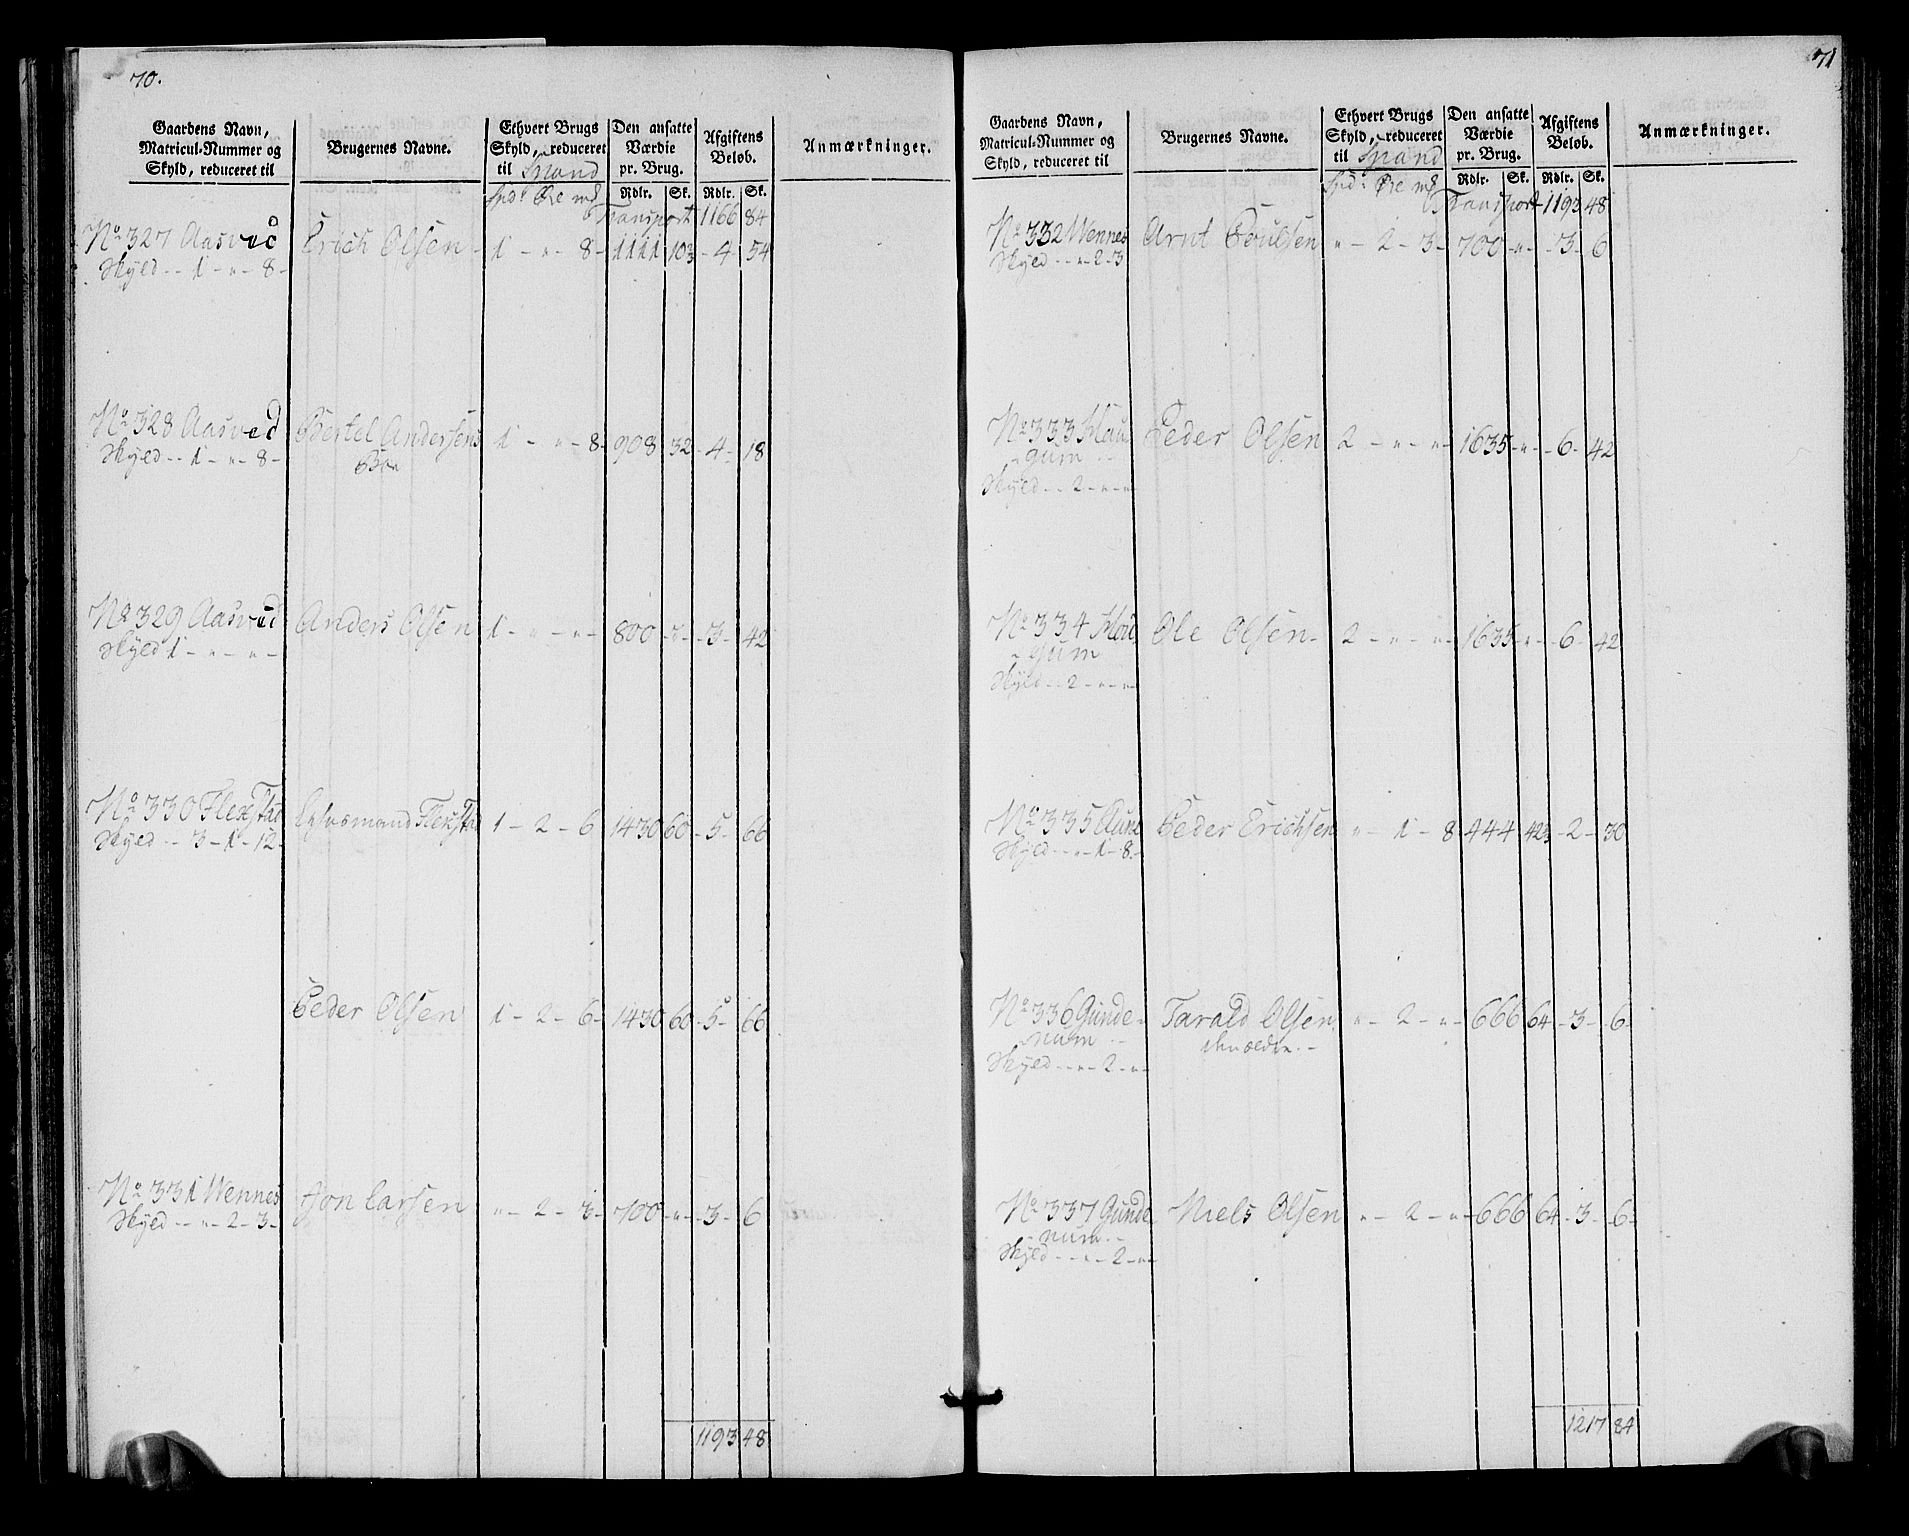 70.
Gaardens Navn,
Matricul-Nummer og
Skyld, reduceret til
Brugernes Navne.
Ethvert Brugs
Skyld, reduceret
til Spand
Den ansatte
Værdie
pr. Brug.
Afgiftens
Beløb.
Anmærkninger.
Spd: Øre mk
Rdlr. Sk. Rdlr. Sk.
Transport 1166 84
No 327 Aasved Erich Olsen 1 - " - 8 - 1111 103 - 4 - 54
Skyld - - 1 - " - 8 -
No 328 Aasved Bertel Andersens 1 - " - 8 - 908 32 - 4 - 18
Skyld - - 1 - " - 8 -
No 329 Aasved Anders Olsen 1 - " - " - 800 - " - - 3 - 42
Skyld 1 - " - " -
No 330 Flexstad Flexstad 1 - 2 - 6 1430 60 - 5 - 66
Skyld - - 3 - 1 - 12 -
Peder Olsen 1 - 2 - 6 - 1430 60 - 5 - 66
No 331 Wennes Jon Larsen " - 2 - 3 - 700 - " - - 3 - 6
Skyld - - " - 2 - 3 -
1193 48
71
Gaardens Navn,
Matricul-Nummer og
Skyld, reduceret til
Brugernes Navne.
Ethvert Brugs
Skyld, reduceret
til Spand
Den ansatte
Værdie
pr. Brug.
Afgiftens
Beløb.
Anmærkninger.
Spd: Øre mk
Rdlr. Sk. Rdlr. Sk.
Transport 1193 48
No 332 Wennes Arnt Poulsen " - 2 - 3 - 700 - " - - 3 - 6
Skyld - - " - 2 - 3
No 333 Peder Olsen 2 - " - " - 1635 - " - - 6 - 42
gum - -
Skyld - - 2 - " - "
No 334 Ole Olsen - 2 - " - " - 1635 " - - 6 - 42
gum
Skyld - - 2 - " - " -
No 335 Aune Peder Erichsen " - 1 - 8 444 42 3/5 - 2 - 30
Skyld - - " - 1 - 8 -
No 336 Gunde- Tarald Olsen " - 2 - " - 666 64 - 3 - 6 -
num - -
Skyld - - " - 2 - " -
No 337 Gunde- Niels Olsen " - 2 - " - 666 64 - 3 - 6 -
num - -
Skyld - - " - 2 - " -
1217 84